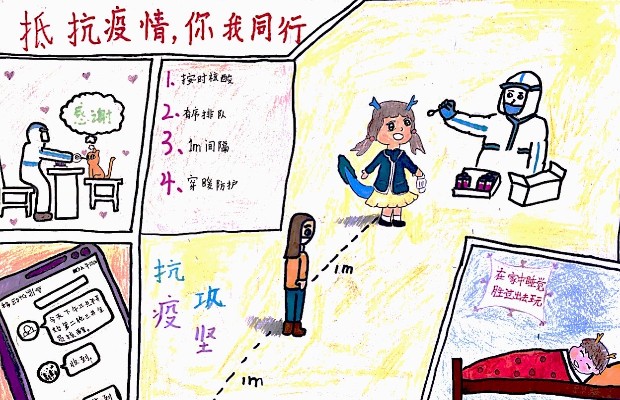 抵抗疫情,你我同行
感谢
1. 按时核酸
2. 有序排队
3. 1m间隔
4. 穿暖防护
抗疫
攻坚
1m
1m
收到.
在家中睡觉
胜过出去玩